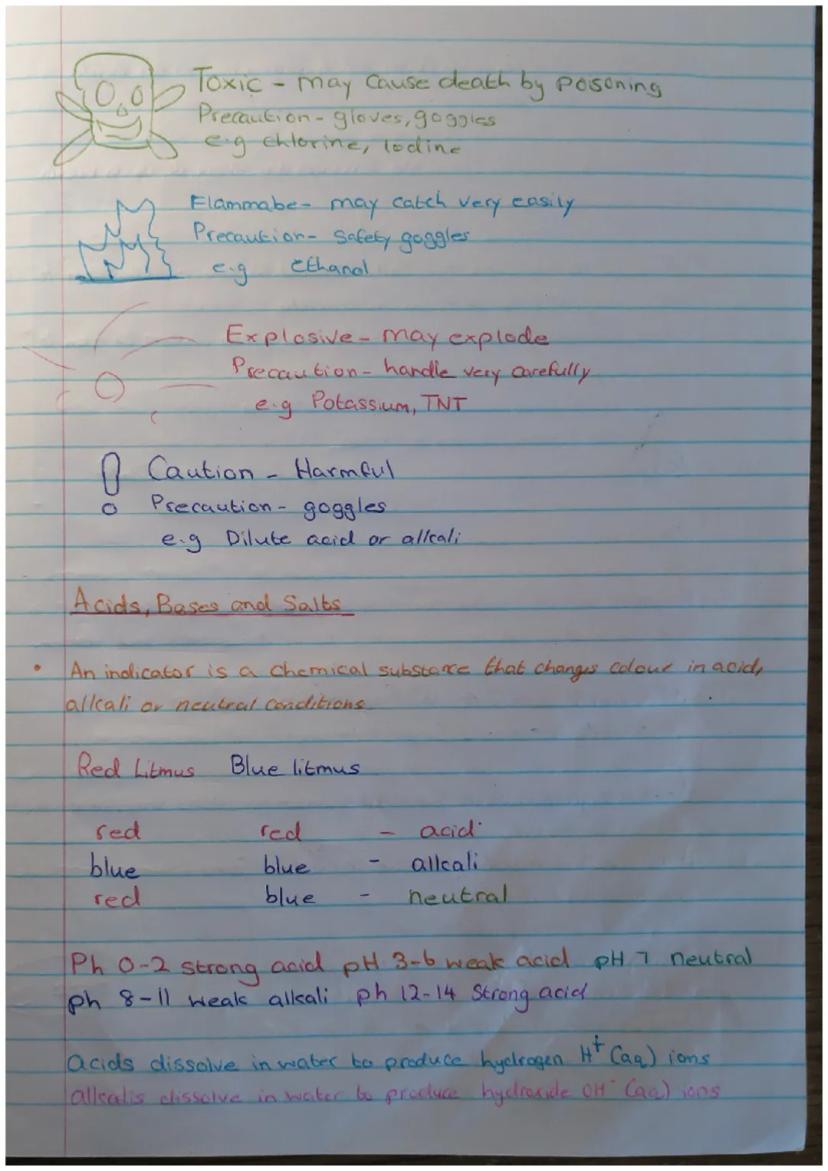 Toxic - may cause death by poisoning
Precaution - gloves, goggles
e.g chlorine, Iodine
Flammabe - may catch very easily
Precaution - Safety goggles
e.g ethanol
Explosive - may explode
Precaution - handle very carefully
e.g Potassium, TNT
Caution - Harmful
Precaution - goggles
e.g Dilute acid or alkali
Acids, Bases and Salts
• An indicator is a chemical substance that changes colour in acid,
alkali or neutral conditions
Red Litmus Blue litmus
red red - acid
blue blue - alkali
red blue - neutral
Ph 0-2 strong acid pH 3-6 weak acid pH 7 neutral
ph 8-11 weak alkali ph 12-14 Strong acid
acids dissolve in water to produce hydrogen H⁺ (aq) ions
alkalis dissolve in water to produce hydroxide OH⁻ (aq) ions